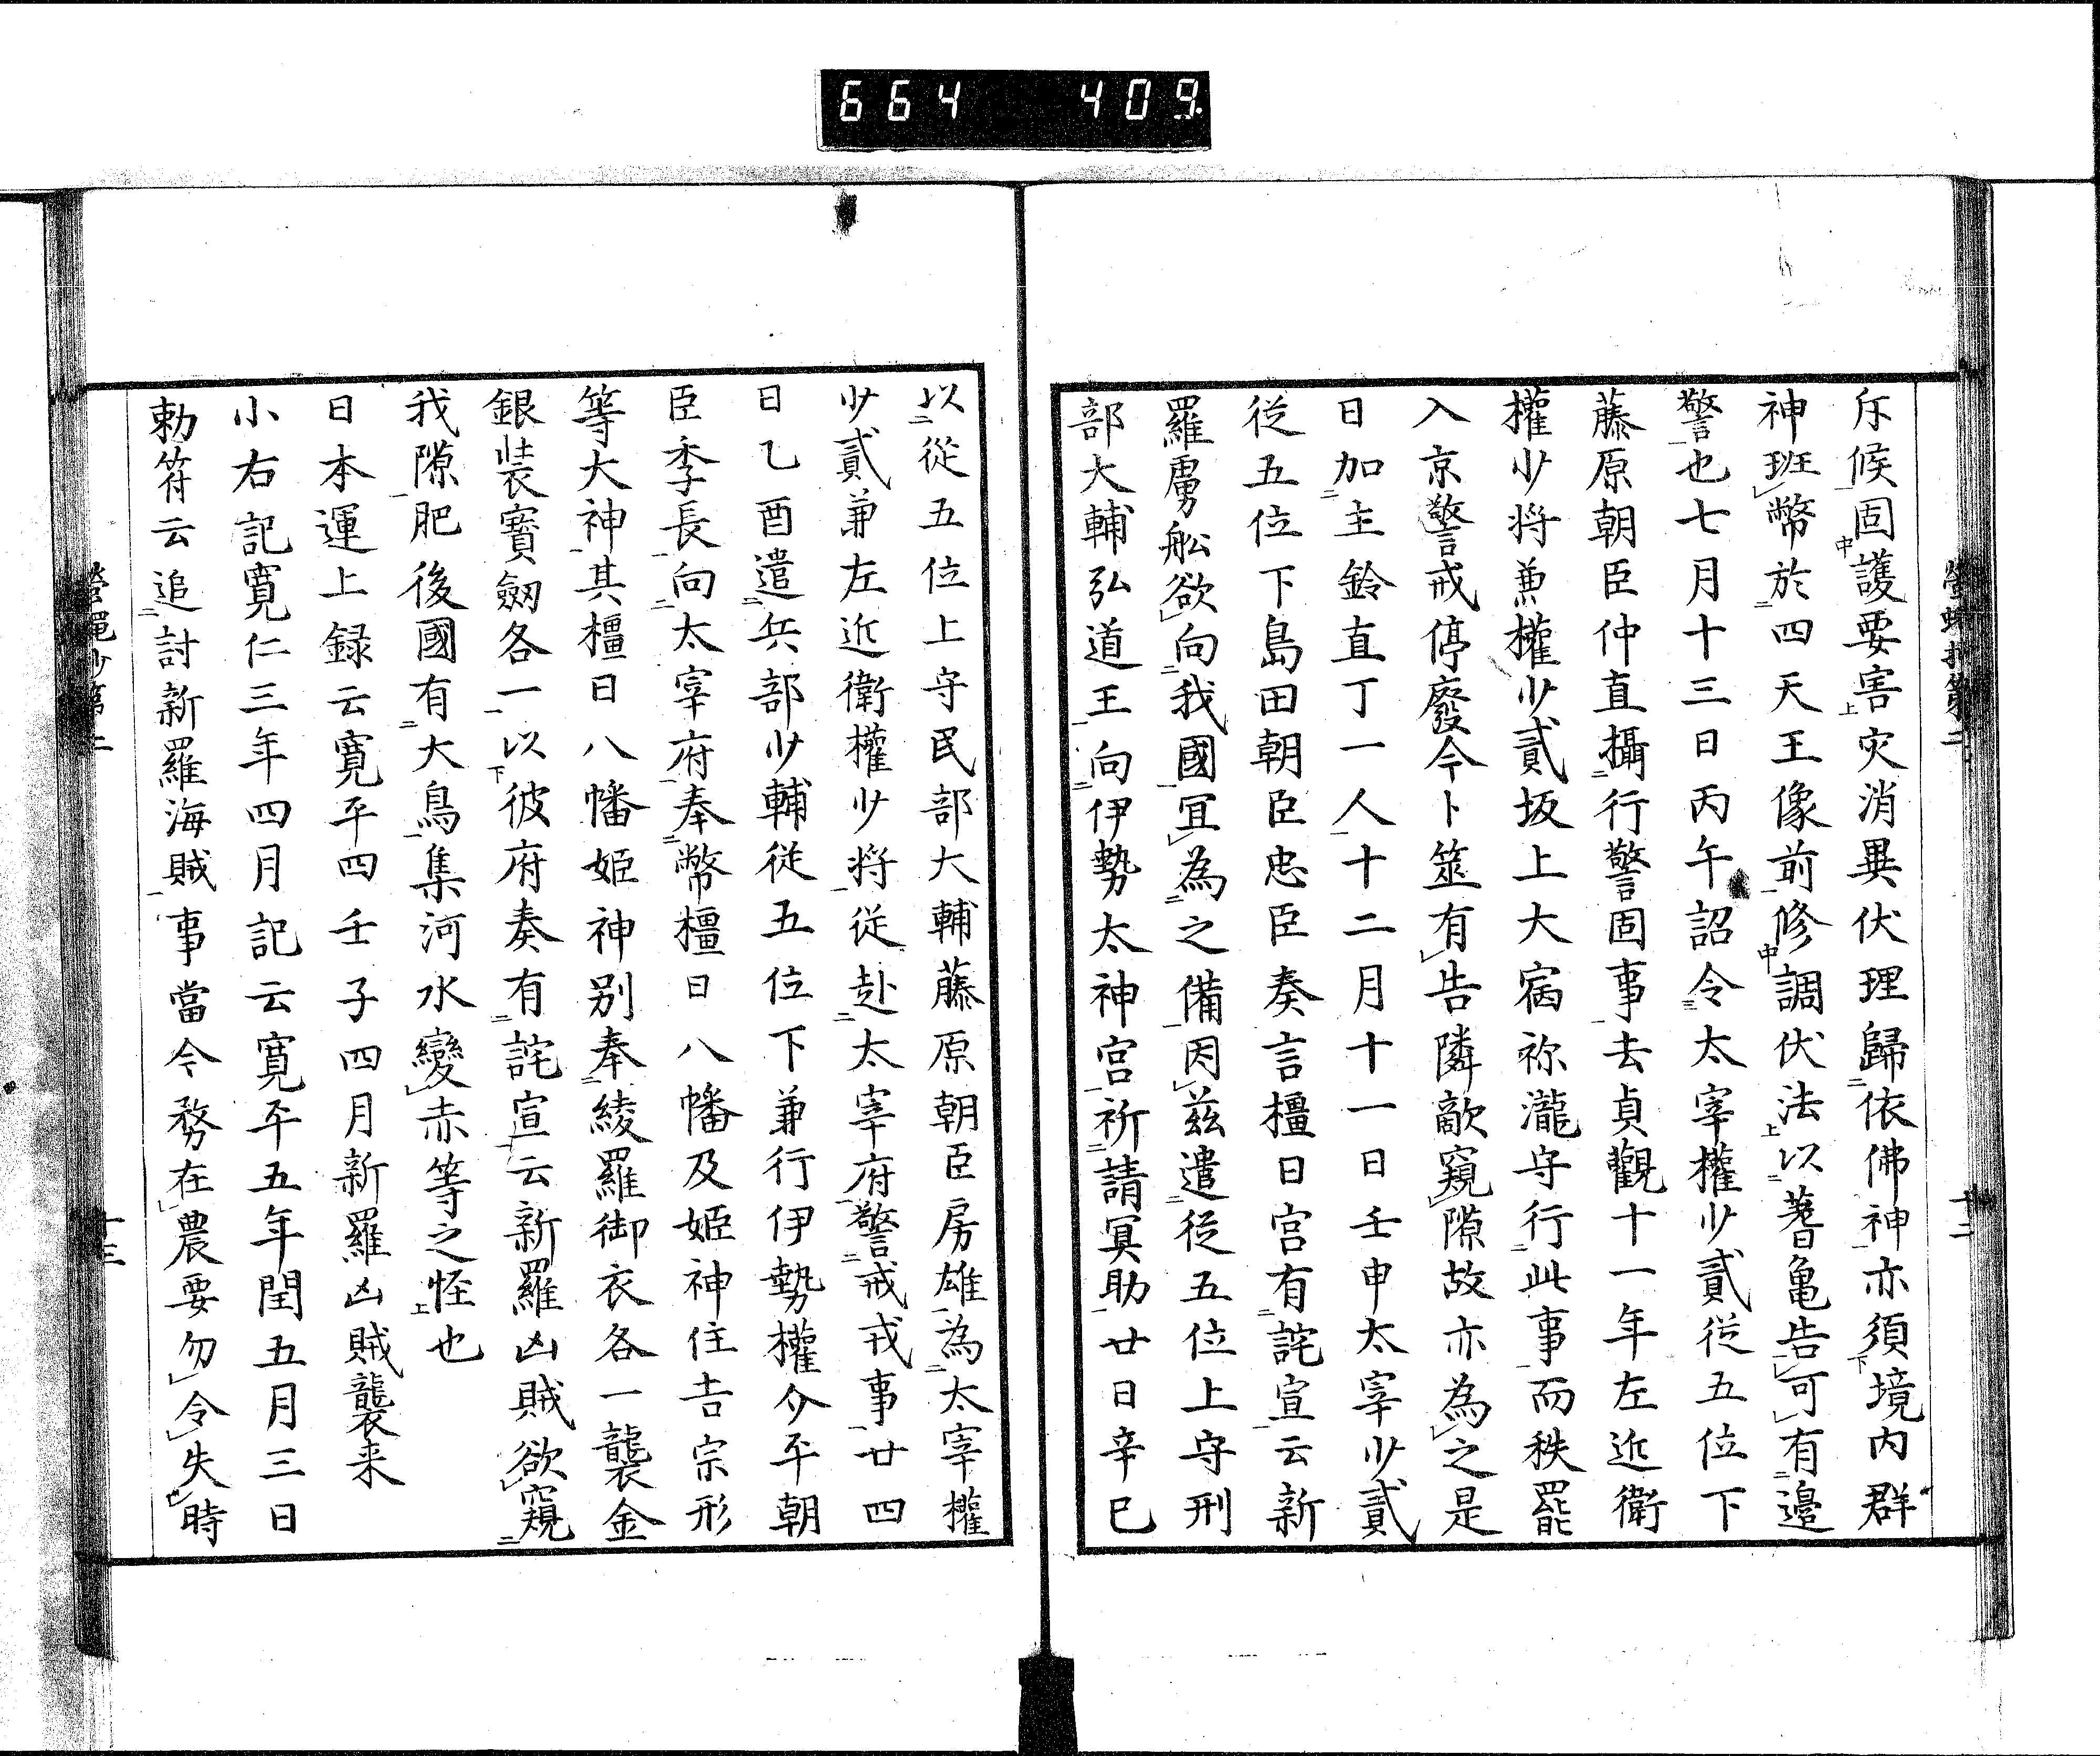 664 409
斥候固護要害灾消異伏理歸依佛神亦須境内群
神班幣於四天王像前修調伏法以蓍亀告可有邉
警也七月十三日丙午詔令太宰權少貳從五位下
藤原朝臣仲直攝行警固事去貞觀十一年左近衛
權少将兼權少貳坂上大宿祢瀧守行此事而秩罷
入京警戒停廢今卜筮有告隣敵窺隙故亦為之是
日加主鈴直丁一人十二月十一日壬申太宰少貳
從五位下島田朝臣忠臣奏言橿日宮有託宣云新
羅虜舩欲向我國冝為之備因兹遣從五位上守刑
部大輔弘道王向伊勢太神宮祈請冥助廿日辛巳
以從五位上守民部大輔藤原朝臣房雄為太宰權
少貳兼左近衛權少将從赴太宰府警戒戎事廿四
日乙酉遣兵部少輔從五位下兼行伊勢權介平朝
臣季長向太宰府奉幣橿日八幡及姫神住吉宗形
等大神其橿日八幡姫神别奉綾羅御衣各一襲金
銀装寶劔各一以彼府奏有託宣云新羅凶賊欲窺
我隙肥後國有大鳥集河水變赤等之恠也
日本運上録云寛平四壬子四月新羅凶賊襲来
小右記寛仁三年四月記云寛平五年閏五月三日
勅符云追討新羅海賊事當今務在農要勿令失時
十三